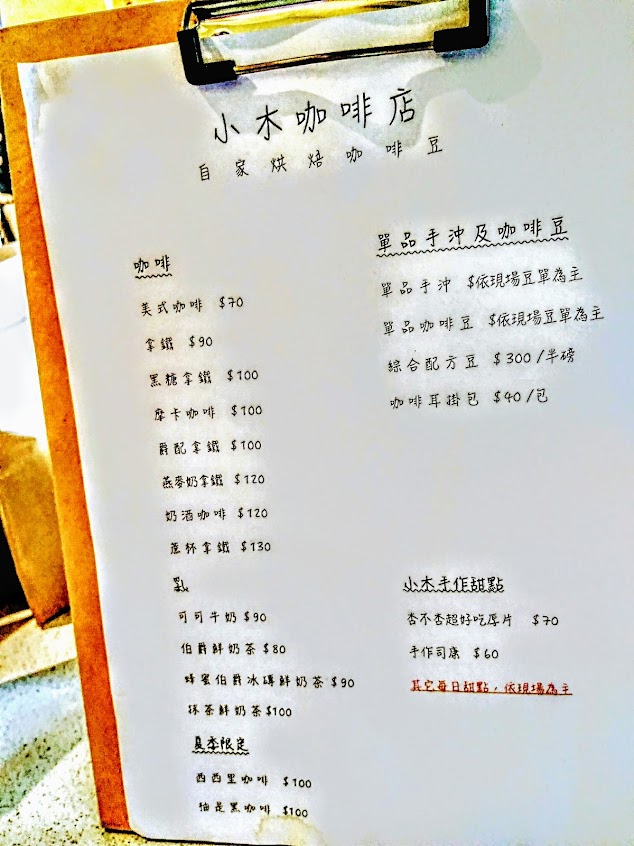 小木咖啡店
自家烘焙咖啡豆
咖啡
美式咖啡 $70
拿鐵 $90
黑糖拿鐵 $100
摩卡咖啡 $100
爵配拿鐵 $100
燕麥奶拿鐵 $120
奶酒咖啡 $120
蕉杯拿鐵 $130
乳
可可牛奶 $90
伯爵鮮奶茶 $80
蜂蜜伯爵冰磚鮮奶茶 $90
抹茶鮮奶茶 $100
夏季限定
西西里咖啡 $100
柚是黑咖啡 $100
單品手沖及咖啡豆
單品手沖 $依現場豆單為主
單品咖啡豆 $依現場豆單為主
綜合配方豆 $300/半磅
咖啡耳掛包 $40/包
小木手作甜點
杏不杏超好吃厚片 $70
手作司康 $60
其它每日甜點,依現場為主